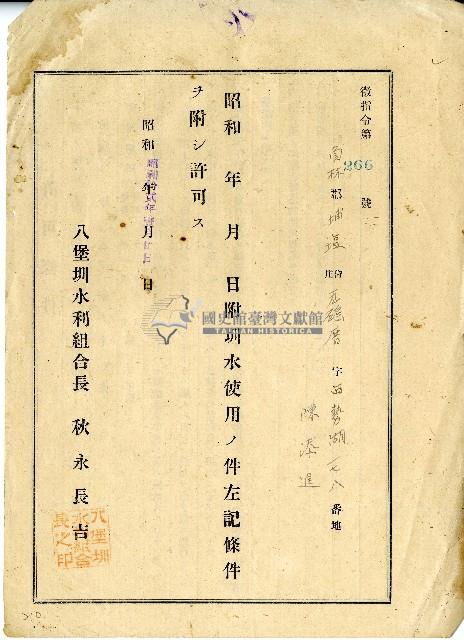 徵指令第266號
員林郡埔塩庄瓦磘厝字西勢湖一七八番地
陳添進
昭和 年 月 日附圳水使用ノ件左記條件
ヲ附シ許可ス
昭和 年 月 日
八堡圳水利組合長 秋永長吉
八堡圳水利組合長之印
國史館臺灣文獻館
TAIWAN HISTORICA